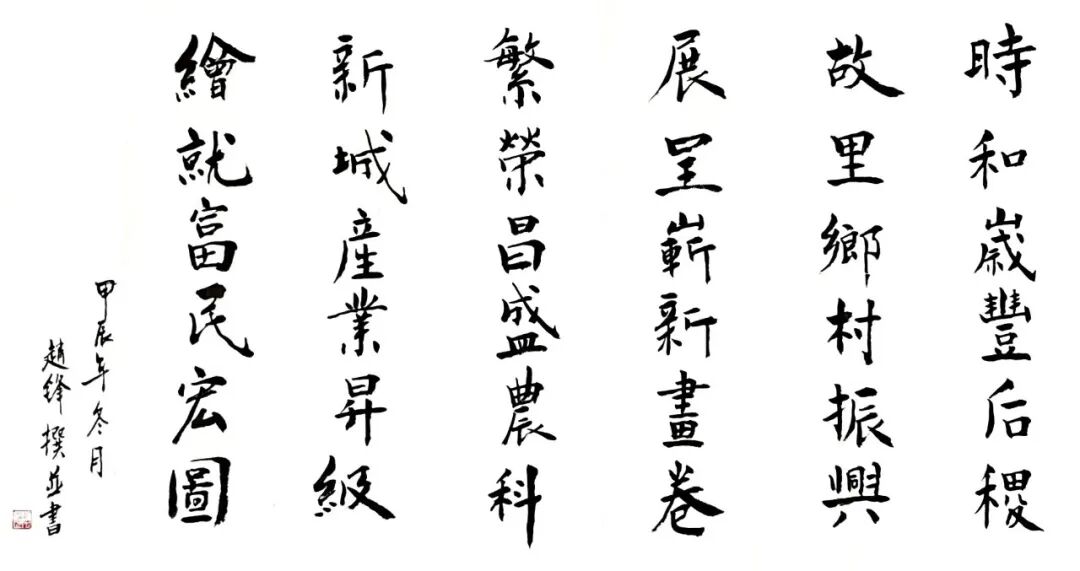 時和歲豐后稷
故里鄉村振興
展呈嶄新畫卷
繁榮昌盛農科
新城產業昇級
繪就富民宏圖
甲辰年冬月
趙鋒撰並書